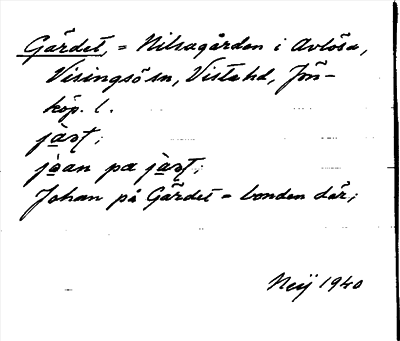 Gärdet, = Nilsagården i Avlösa,
Visingsö sn, Vista hd, Jön-
köp. l.
jàat;
jòan pa jàat;
Johan på Gärdet = bonden där;
Neij 1940